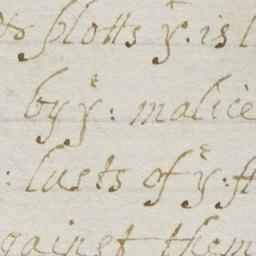 plotts yᵉ. is
by yᵉ: malice
: lusts of yᵉ: fl
gainst them